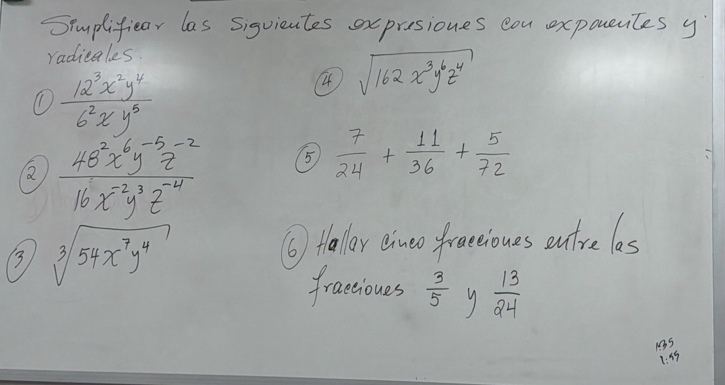 Simplificar las siguientes expresiones con exponentes y
radicales.
① \frac{12^3 x^2 y^4}{6^2 x y^5}
② \frac{48^2 x^6 y^{-5} z^{-2}}{16 x^{-2} y^3 z^{-4}}
③ \sqrt[3]{54x^7y^4}
④ \sqrt{162 x^3 y^6 z^4}
⑤ \frac{7}{24} + \frac{11}{36} + \frac{5}{72}
⑥ Hallar cinco fracciones entre las
fracciones \frac{3}{5} y \frac{13}{24}